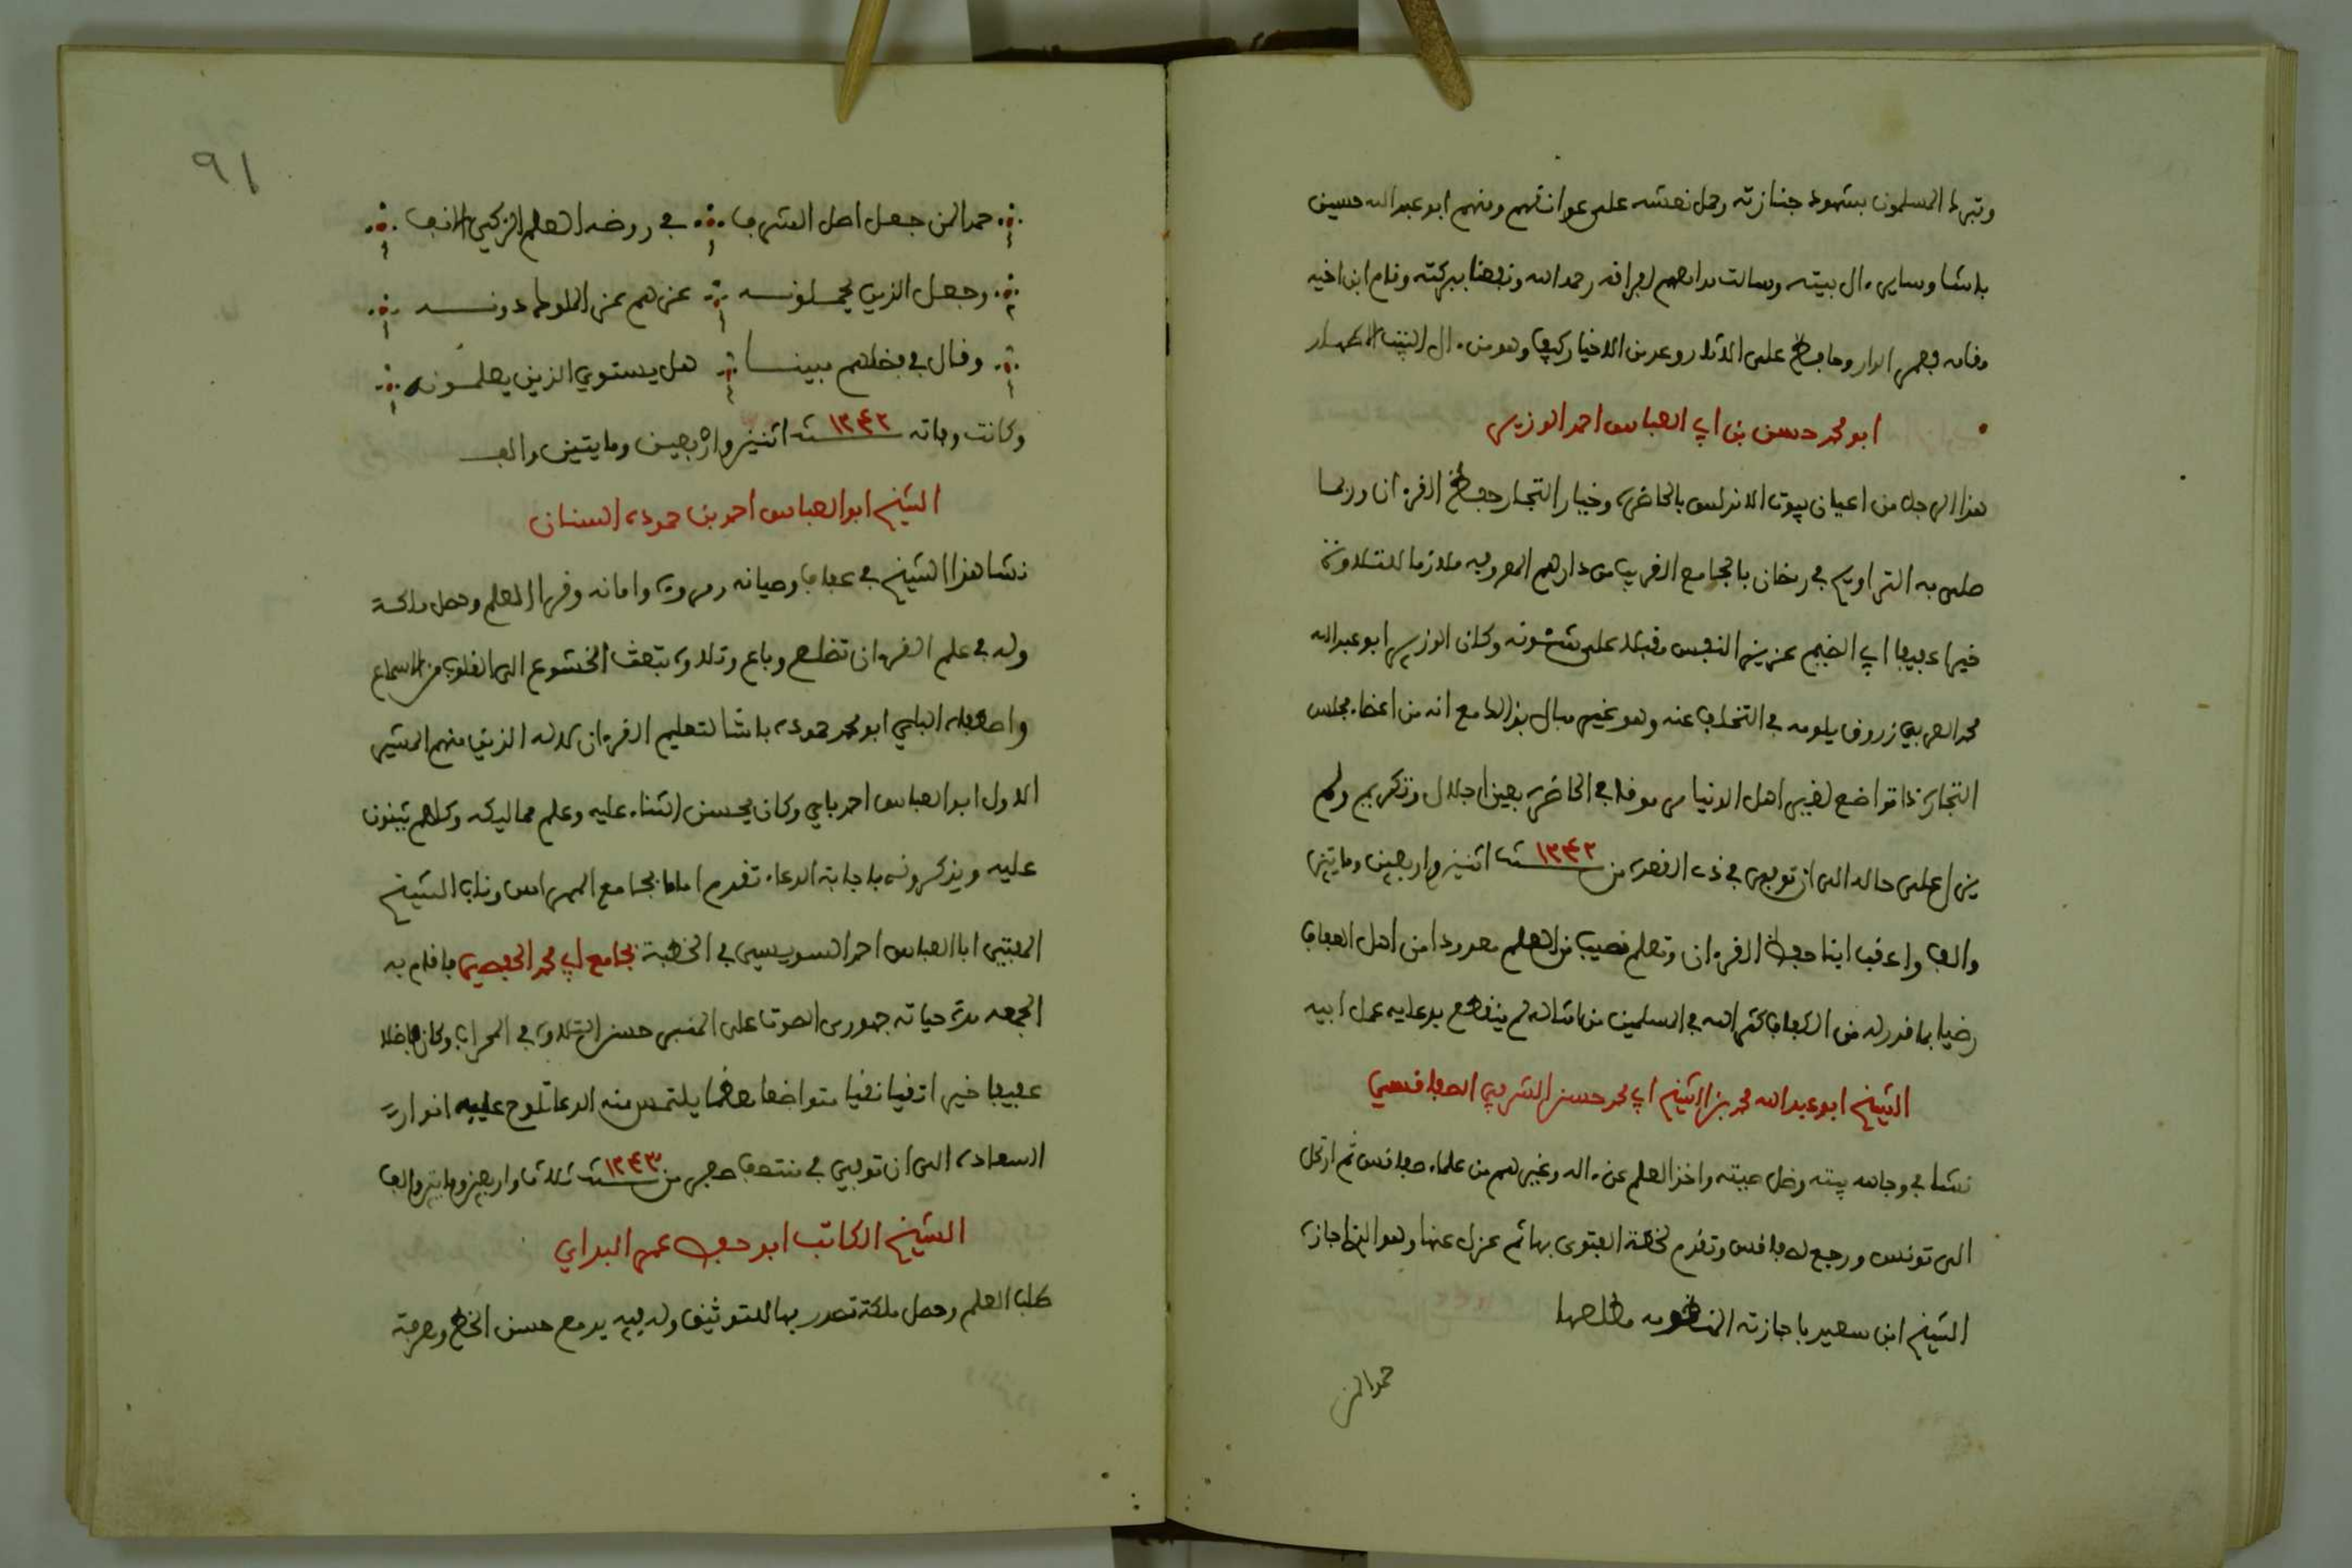 وتبرك المسلمون بشهود جنازته وحمل نعشه على عواتقهم ومنهم ابو عبد الله حسين
باشا وساير ءال بيته وسالت مدامعهم لفراقه رحمه الله ونفعنا ببركته وقام ابن اخيه
مقامه فعمر الدار وحافظ على الاثار وعد من الاخيار كيف وهو من ءال البيت الاطهار
ابو محمد حسن بن ابي العباس احمد الوزير
هذا الرجل من اعيان بيوت الاندلس بالحاضرة وخيار التجار حفظ القرءان وربما
صلى به التراويح في رمضان بالجامع القريب من دارهم المعروفه ملازما للتلاوة
خيرا عفيفا ابي الضيم عزيز النفس مقبلا على شؤنه وكان الوزير ابو عبد الله
محمد العربي زروق يلومه في التخلف عنه وهو غير مبال بذلك مع انه من اعضاء مجلس
التجارة ذا تواضع لغير اهل الدنيا مرموقا في الحاضرة بعين اجلال وتكريم ولم
يزل على حاله الى ان توفي في ذي القعدة من ١٢٤٢ سنة اثنين واربعين ومايتين
والف واعقب ابنا حفظ القرءان وتعلم نصيبا من العلم معدودا من اهل العفاف
رضيا بما قدر له من الكفاف كثر الله في المسلمين من امثاله لم ينقطع بدعايه عمل ابيه
الشيخ ابو عبد الله محمد بن الشيخ ابي محمد حسن الشرفي الصفاقسي
نشا في وجاهه بيته وظل صيته واخذ العلم عن ءاله وغيرهم من علماء صفاقس ثم ارتحل
الى تونس ورجع لصفاقس وتقدم لخطة الفتوى بها ثم عزل عنها وهو الذي اجازه
الشيخ ابن سعيد باجازته المنظومه مطلعها
حمدا لمن
٩١
حمدا لمن جعل اهل الشرف في روضة العلم الزكي الانف
وجعل الذين يحملونه عزهم عز الملوك دونه
وقال في فضلهم مبينا هل يستوي الذين يعلمونه
وكانت وفاته سنة ١٢٤٢ اثنين واربعين ومايتين والف
الشيخ ابو العباس احمد بن حموده السنان
نشا هذا الشيخ في عفاف وصيانه ومروة وامانه وقرا العلم وحصل ملكة
وله في علم القرءان تضلع وباع وتلاوة تبعث الخشوع الى القلوب من الاسماع
واصطفاه الباي ابو محمد حموده باشا لتعليم القرءان لاله الذين منهم المشير
الاول ابو العباس احمد باي وكان يحسن الثناء عليه وعلم مماليكه وكلهم يثنون
عليه ويذكرونه باجابة الدعاء تقدم اماما بجامع المهراس وناب الشيخ
المفتي ابا العباس احمد السويسي في الخطبة بجامع ابي محمد الحفصي فاقام به
الجمعه مدة حياته جهوري الصوت على المنبر حسن التلاوة في المحراب وكان فاضلا
عفيفا خيرا تقيا نقيا متواضعا معظما يلتمس منه الدعا تلوح عليه انوار
السعادة الى ان توفي في منتصف صفر من سنة ١٢٤٣ ثلاث واربعين ومايتين والف
الشيخ الكاتب ابو حفص عمر البراي
طلب العلم وحصل ملكة تصدر بها للتوثيق وله فيه يد مع حسن الخط ومعرفة